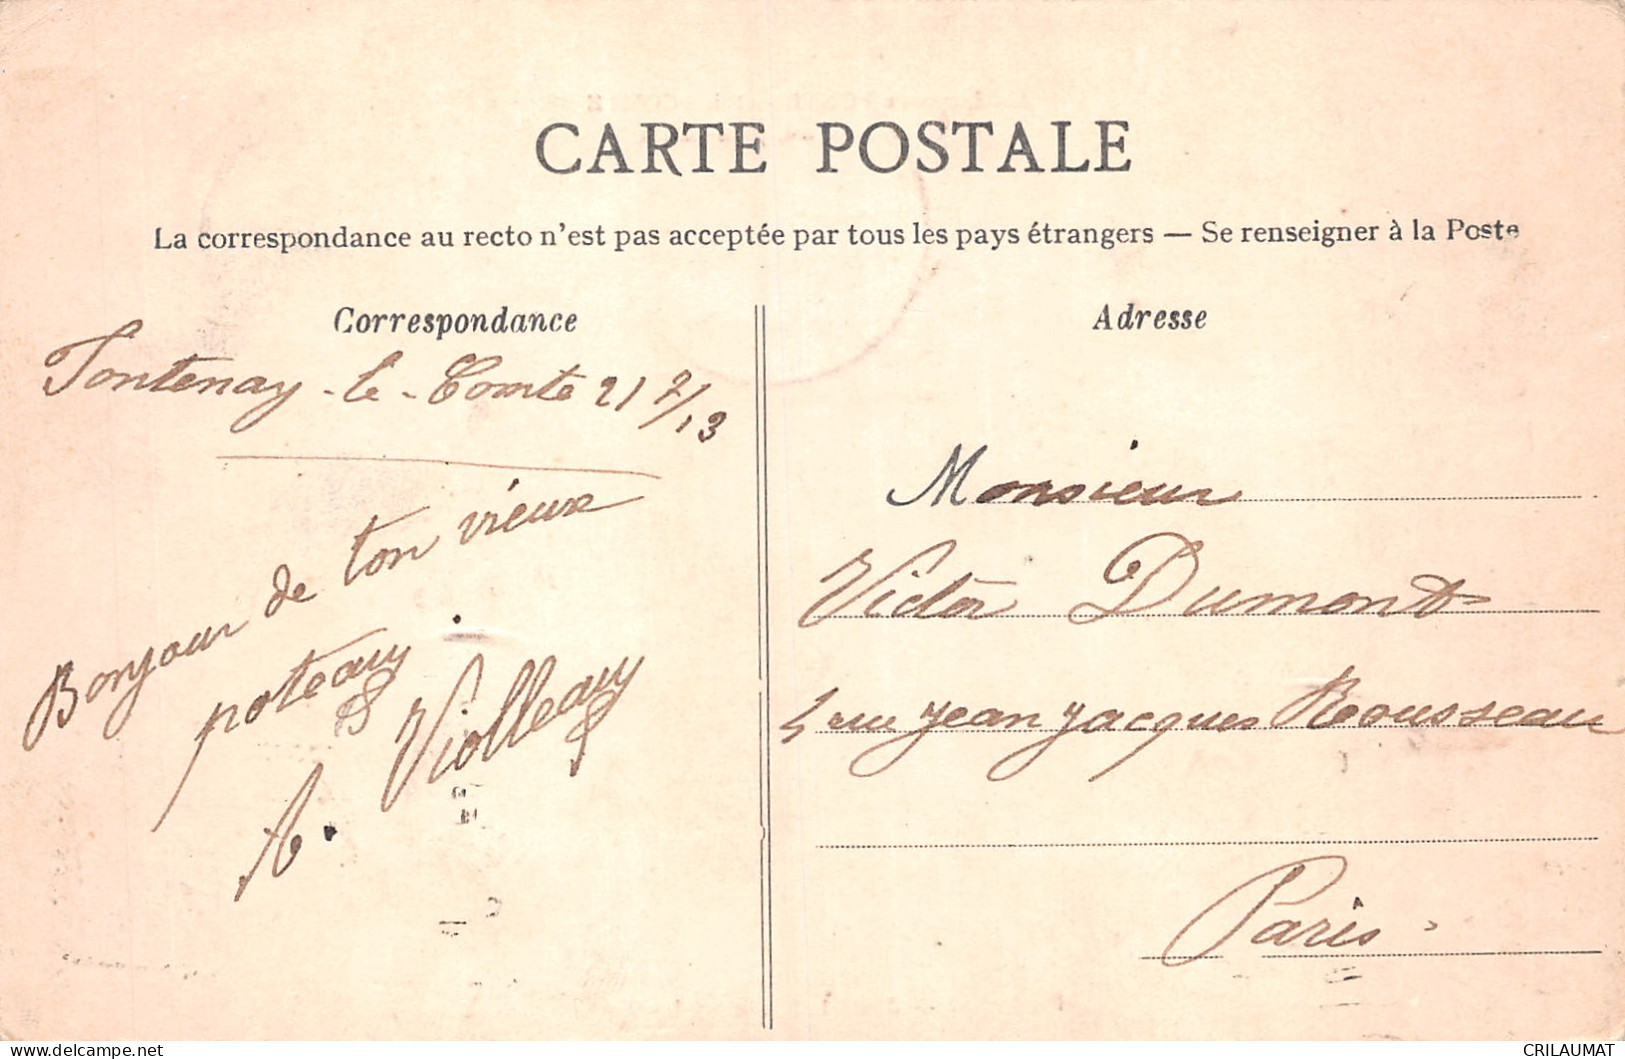 CARTE POSTALE
La correspondance au recto n'est pas acceptée par tous les pays étrangers — Se renseigner à la Poste
Correspondance
Fontenay-le-Comte 21 7/13
Bonjour de ton vieux
poteau
A. Violleau
Adresse
Monsieur
Victor Dumont
rue Jean Jacques Rousseau
Paris
CRILAUMAT